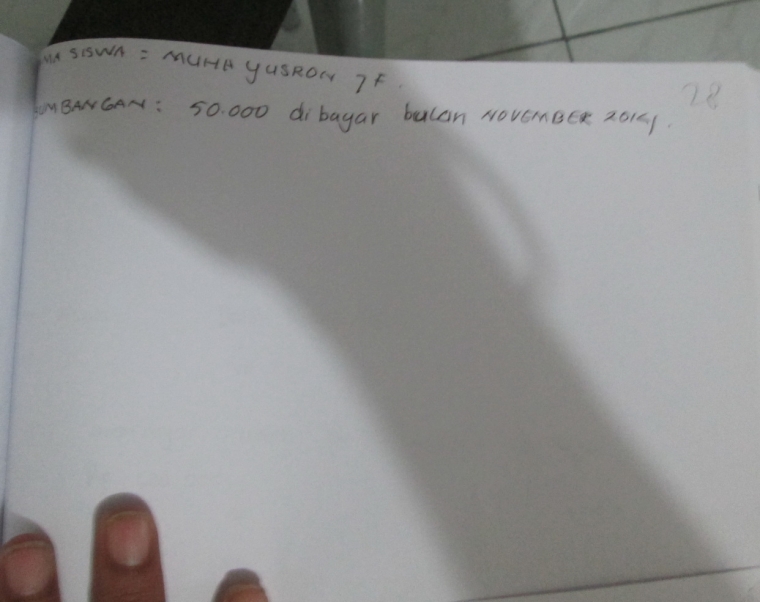 MA SISWA = MUHA YUSRON 7F.
UMBANGAN: 50.000 di bayar bulan NOVEMBER 2014.
28